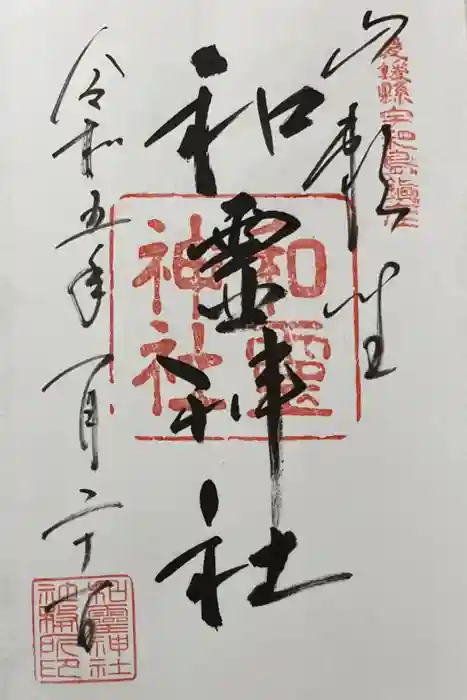 愛媛縣宇和島鎮座
和霊神社
和靈神社
令和五年一月二十一日
和靈神社社務所印